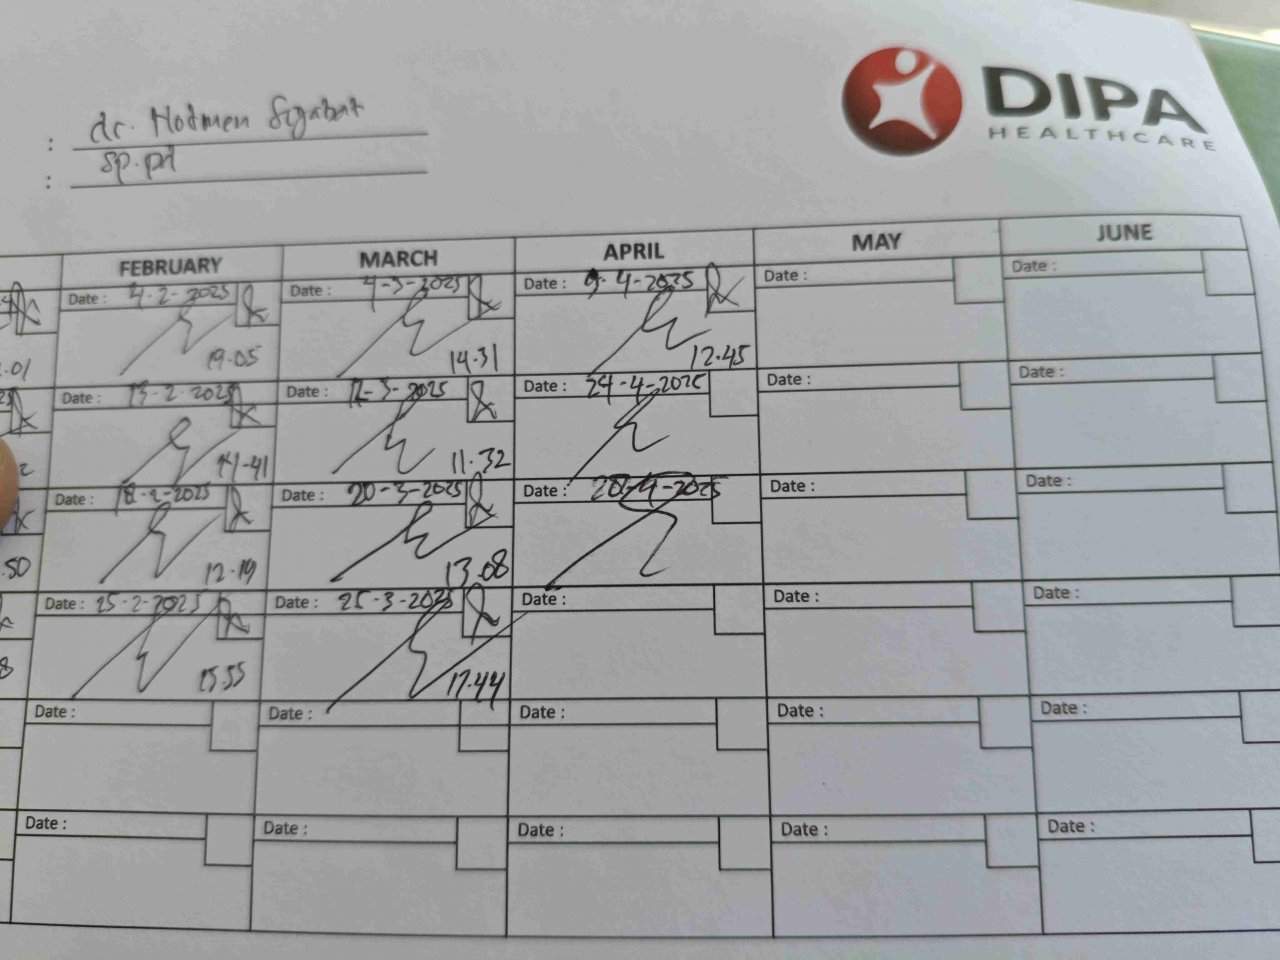 DIPA
HEALTHCARE
: dr. Hotmen Sijabat
: Sp.pd
FEBRUARY MARCH APRIL MAY JUNE
Date : 4-2-2025 Date : 4-3-2025 Date : 9-4-2025 Date : Date :
.01 19.05 14.31 12.45
Date : 13-2-2025 Date : 12-3-2025 Date : 24-4-2025 Date : Date :
2 11.32
Date : 18-2-2025 Date : 20-3-2025 Date : 28-4-2025 Date : Date :
.50 12.19 13.08
Date : 25-2-2025 Date : 25-3-2025 Date : Date : Date :
8 15.55 17.44
Date : Date : Date : Date : Date :
Date : Date : Date : Date : Date :